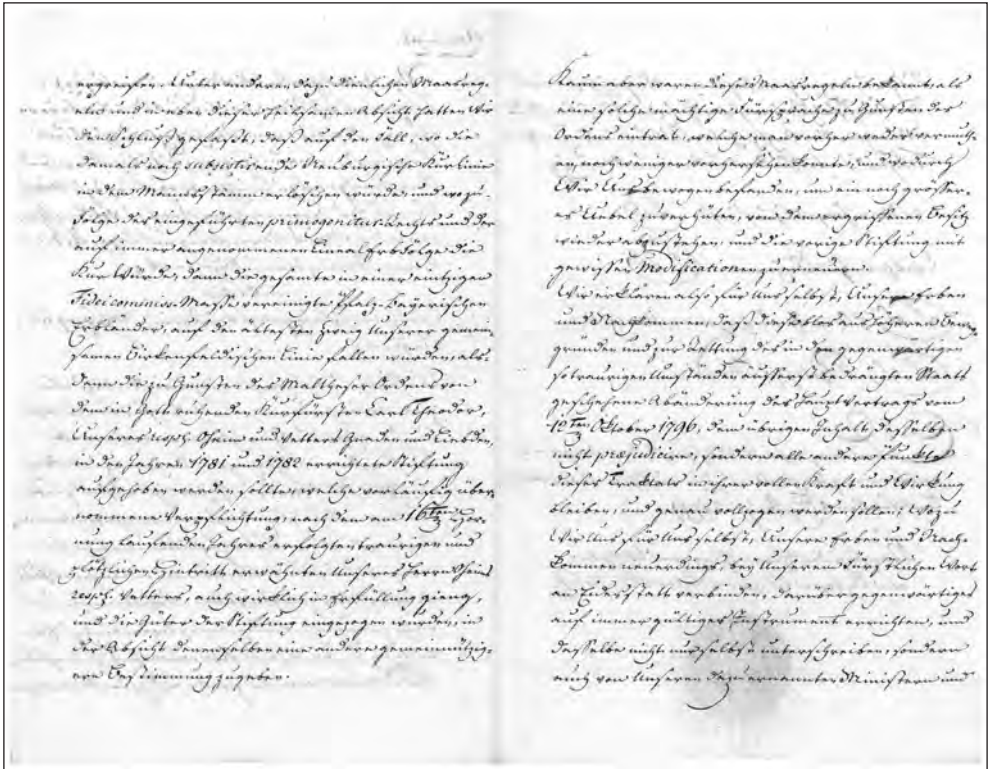 ergreifen. Unter anderen dazu dienlichen Maasreg-
eln und in eben dieser heilsamen Absicht hatten Wir
den Schluß gefaßt, daß auf den Fall, wo die
damals noch subsistirende Neuburgische Kurlinie
in dem Mannsstamm erlöschen würde, und wo zu-
folge des eingeführten primogenitur Rechts und der
auf immer angenommenen Lineal Erbfolge die
Kur Würde, dann die gesamte in einer eintzigen
Fideicommiss-Masse vereinigte Pfalz-Bayerischen
Erbländer, auf den ältesten Zweig Unserer gemein-
samen Birkenfeldischen Linie fallen würden, als-
dann die zu Gunsten des Maltheser Ordens von
dem in Gott ruhenden Kurfürsten Carl Theodor,
Unseres resp. Oheim und Vetters Gnaden und Liebden,
in den Jahren 1781 und 1782 errichtete Stiftung
aufgehoben werden sollte, welche vorläufig über-
nommene Verpflichtung, nach dem am 16ten Hor-
nung laufenden Jahres erfolgten traurigen und
plötzlichen Hintritt erwähnten Unseres Herrn Oheims
resp. Vetters, auch wirklich in Erfüllung gieng,
und die Güter der Stiftung eingezogen wurden, in
der Absicht denenselben eine andere gemeinnützig-
ere Bestimmung zugeben.
Kaum aber waren diese Maasregeln bekannt, als
eine solche mächtige Fürsprache zu Gunsten des
Ordens eintrat, welche man vorher weder vermuth-
en, noch weniger vorhersehen konnte, und wodurch
Wir Uns bewogen befanden, um ein noch grösser-
es Uebel zu verhüten, von dem ergriffenen Besitz
wieder abzustehen, und die vorige Stiftung mit
gewissen Modificationen zu erneuern.
Wir erklären also für Uns selbst, Unsere Erben
und Nachkommen, daß diese blos aus höheren Beweg-
gründen und zur Rettung des in den gegenwärtigen
so traurigen Umständen äusserst bedrängten Staats
geschehene Abänderung des Hauptvertrags vom
12ten Oktober 1796, dem übrigen Inhalt desselben
nicht præjudicire, sondern alle andere Punkte
dieses Traktats in ihrer vollen Kraft und Wirkung
bleiben, und genau vollzogen werden sollen; Wozu
Wir Uns für Uns selbst, Unsere Erben und Nach-
kommen neuerdings, bey Unserem Fürstlichen Wort
an Eidesstatt verbinden, darüber gegenwärtiges
auf immer gültiges Instrument errichten, und
dasselbe nicht nur selbst unterschreiben, sondern
auch von Unseren dazu ernannten Ministern und